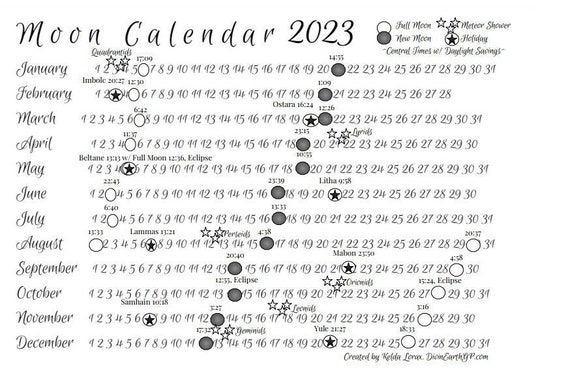 Moon Calendar 2023
Full Moon Meteor Shower
New Moon Holiday
~Central Times w/ Daylight Savings~
Quadrantids 17:09 14:55
January 1 2 3 4 5 7 8 9 10 11 12 13 14 15 16 17 18 19 20 22 23 24 25 26 27 28 29 30 31
Imbolc 20:27 12:30 1:09
February 1 2 4 6 7 8 9 10 11 12 13 14 15 16 17 18 19 21 22 23 24 25 26 27 28
6:42 Ostara 16:24 12:26
March 1 2 3 4 5 6 8 9 10 11 12 13 14 15 16 17 18 19 22 23 24 25 26 27 28 29 30 31
11:37 23:15 Lyrids
April 1 2 3 4 6 7 8 9 10 11 12 13 14 15 16 17 18 20 21 22 23 24 25 26 27 28 29 30
Beltane 13:13 w/ Full Moon 12:36, Eclipse 10:55
May 1 2 3 4 6 7 8 9 10 11 12 13 14 15 16 17 18 20 21 22 23 24 25 26 27 28 29 30 31
22:43 23:39 Litha 9:58
June 1 2 4 5 6 7 8 9 10 11 12 13 14 15 16 18 19 20 22 23 24 25 26 27 28 29 30
6:40 13:33
July 1 2 4 5 6 7 8 9 10 11 12 13 14 15 16 18 19 20 21 22 23 24 25 26 27 28 29 30 31
13:33 Lammas 13:21 Perseids 4:38 20:37
August 2 3 4 5 6 8 9 10 11 12 13 14 15 17 18 19 20 21 22 23 24 25 26 27 28 29 31
20:40 Mabon 23:50 4:58
September 1 2 3 4 5 6 7 8 9 10 11 12 13 15 16 17 18 19 20 21 22 24 25 26 27 28 30
12:55, Eclipse Orionids 15:24, Eclipse
October 1 2 3 4 5 6 7 8 9 10 11 12 13 15 16 17 18 19 20 21 22 23 24 25 26 27 29 30 31
Samhain 10:18 3:27 Leonids 3:16
November 1 2 3 4 5 6 8 9 10 11 12 14 15 16 17 18 19 20 21 22 23 24 25 26 28 29 30
17:32 Geminids Yule 21:27 18:33
December 1 2 3 4 5 6 7 8 9 10 11 13 14 15 16 17 18 19 20 22 23 24 25 27 28 29 30 31
Created by Kelda Lorax, DivinEarthGP.com